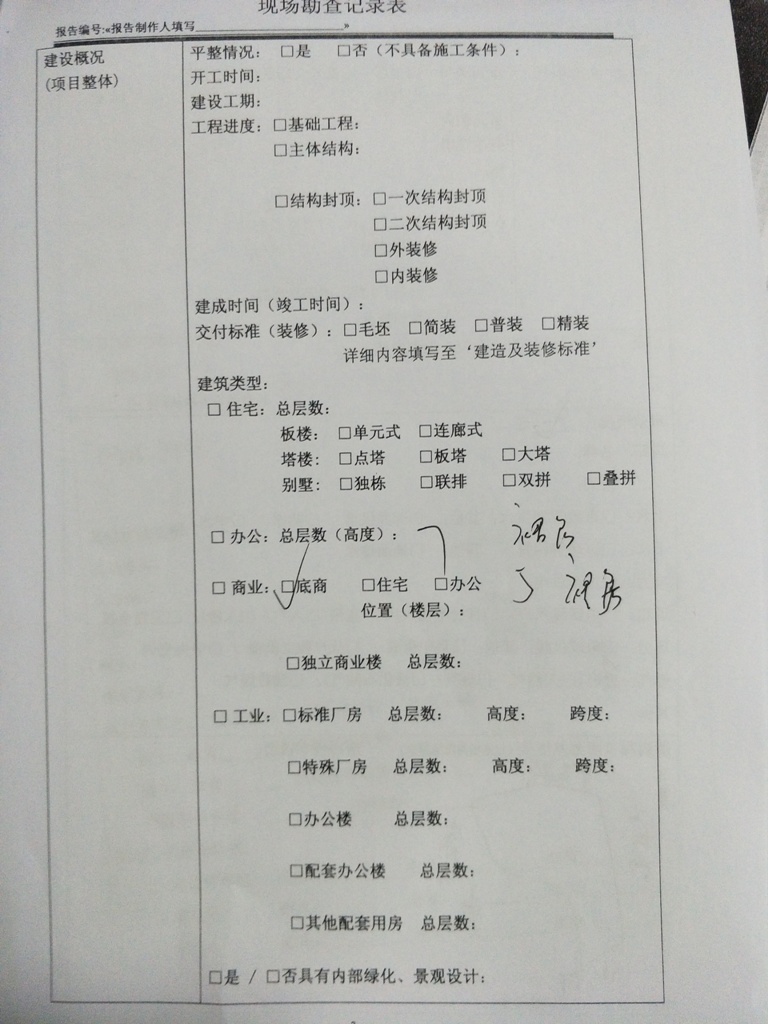 现场勘查记录表
报告编号:«报告制作人填写»
建设概况
(项目整体)
平整情况： □是 □否（不具备施工条件）：
开工时间：
建设工期：
工程进度：□基础工程：
□主体结构：
□结构封顶：□一次结构封顶
□二次结构封顶
□外装修
□内装修
建成时间（竣工时间）：
交付标准（装修）：□毛坯 □简装 □普装 □精装
详细内容填写至‘建造及装修标准’
建筑类型：
□ 住宅：总层数：
板楼： □单元式 □连廊式
塔楼： □点塔 □板塔 □大塔
别墅： □独栋 □联排 □双拼 □叠拼
□ 办公：总层数（高度）：
□ 商业：□底商 □住宅 □办公
位置（楼层）：
□独立商业楼 总层数：
□ 工业：□标准厂房 总层数： 高度： 跨度：
□特殊厂房 总层数： 高度： 跨度：
□办公楼 总层数：
□配套办公楼 总层数：
□其他配套用房 总层数：
□是 / □否具有内部绿化、景观设计：